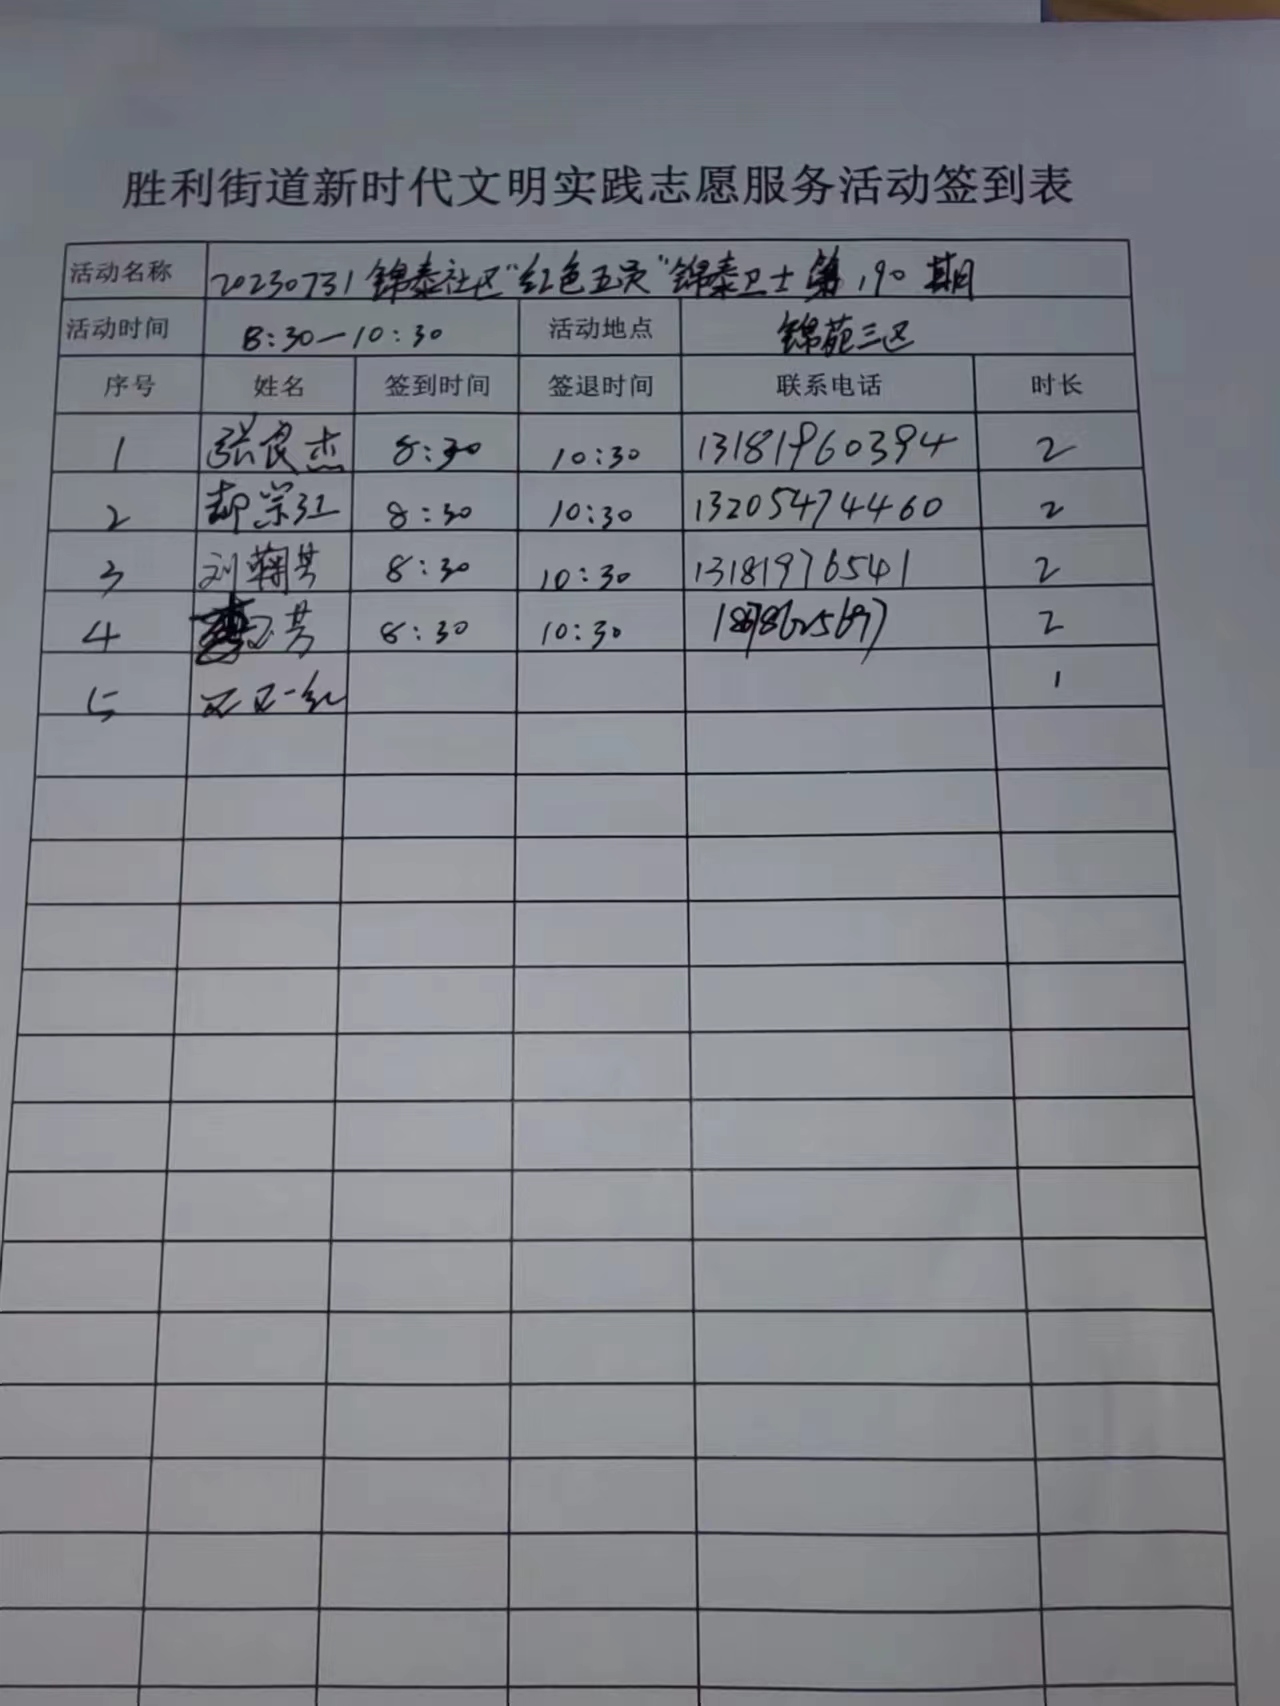 胜利街道新时代文明实践志愿服务活动签到表
活动名称 20230731锦泰社区"红色五员"锦泰卫士第190期
活动时间 8:30—10:30 活动地点 锦苑三区
序号 姓名 签到时间 签退时间 联系电话 时长
1 张良杰 8:30 10:30 13181960394 2
2 郝崇江 8:30 10:30 13205474460 2
3 刘菊芳 8:30 10:30 13181976541 2
4 8:30 10:30 2
5 1